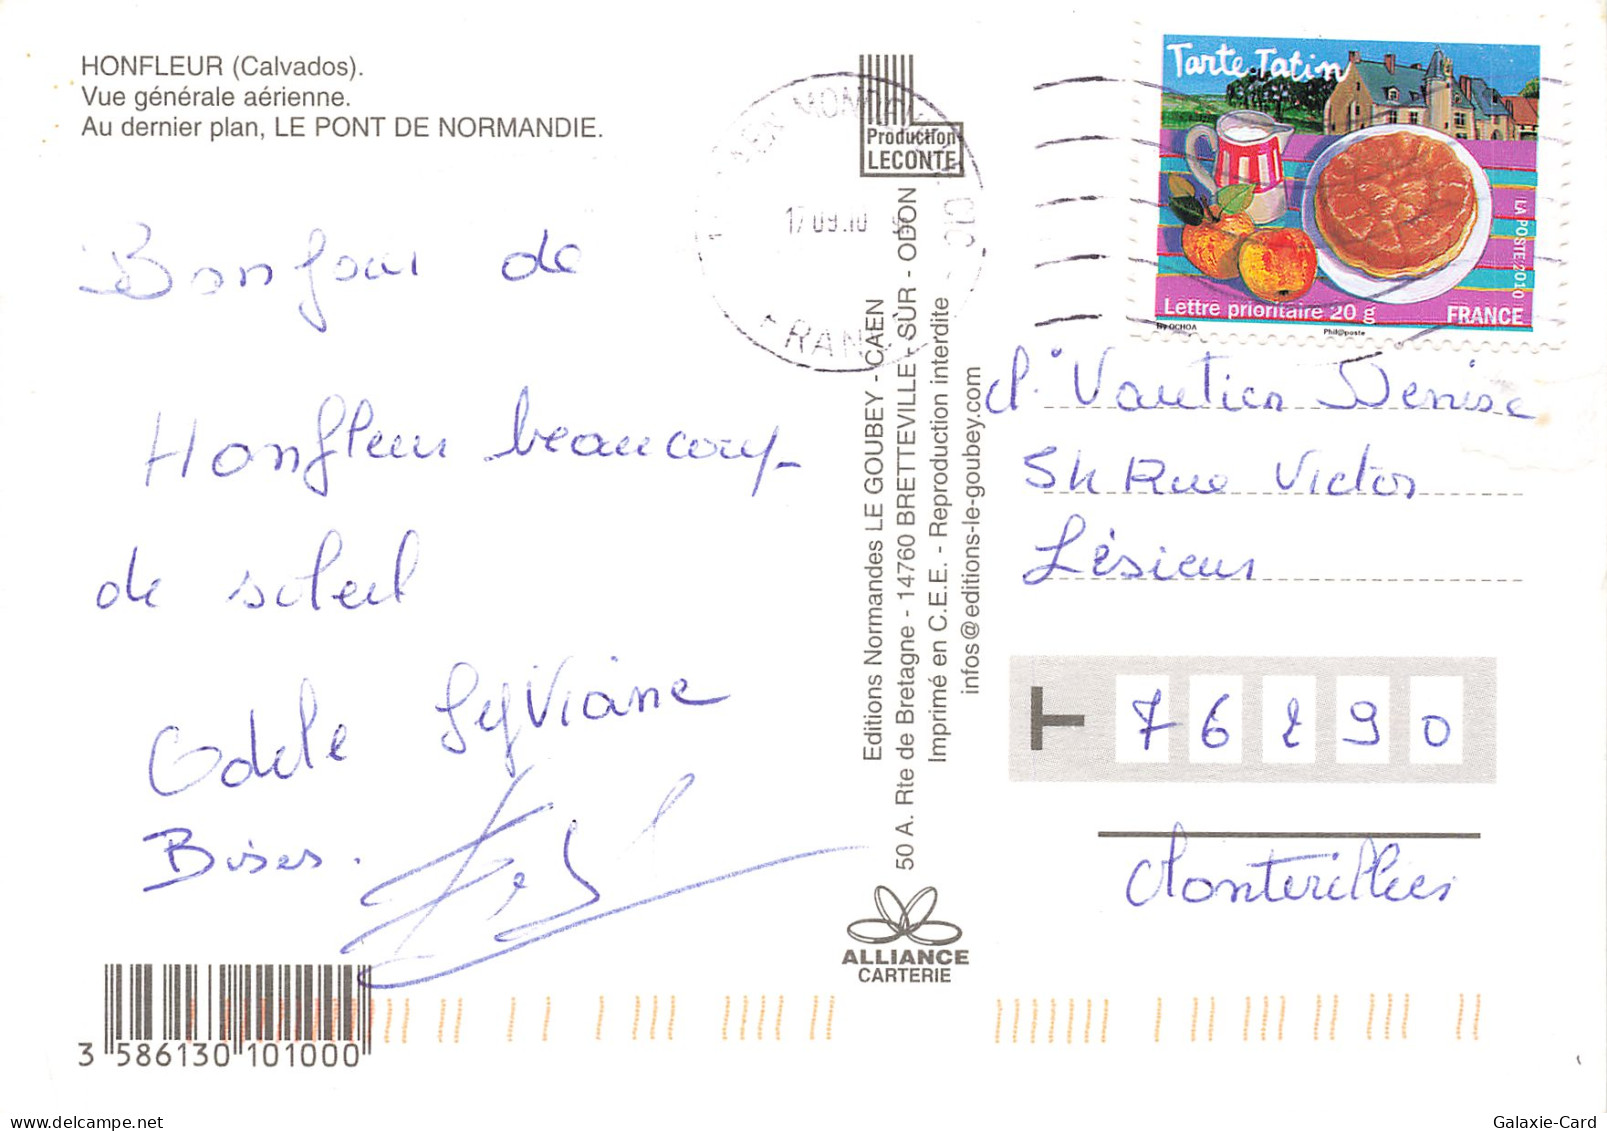 HONFLEUR (Calvados).
Vue générale aérienne.
Au dernier plan, LE PONT DE NORMANDIE.
Bonjour de
Honfleur beaucoup
de soleil
Odile Sylviane
Bises.
3 586130 101000
Production
LECONTE
Editions Normandes LE GOUBEY - CAEN
50 A. Rte de Bretagne - 14760 BRETTEVILLE - SUR - ODON
Imprimé en C.E.E. - Reproduction interdite
infos@editions-le-goubey.com
ALLIANCE
CARTERIE
17 09.10
FRANCE
Tarte Tatin
LA POSTE 2010
Lettre prioritaire 20 g
FRANCE
By OCHOA
Phil@poste
Vautier Denise
54 Rue Victor
Lésieur
76290
Montivilliers
Galaxie-Card